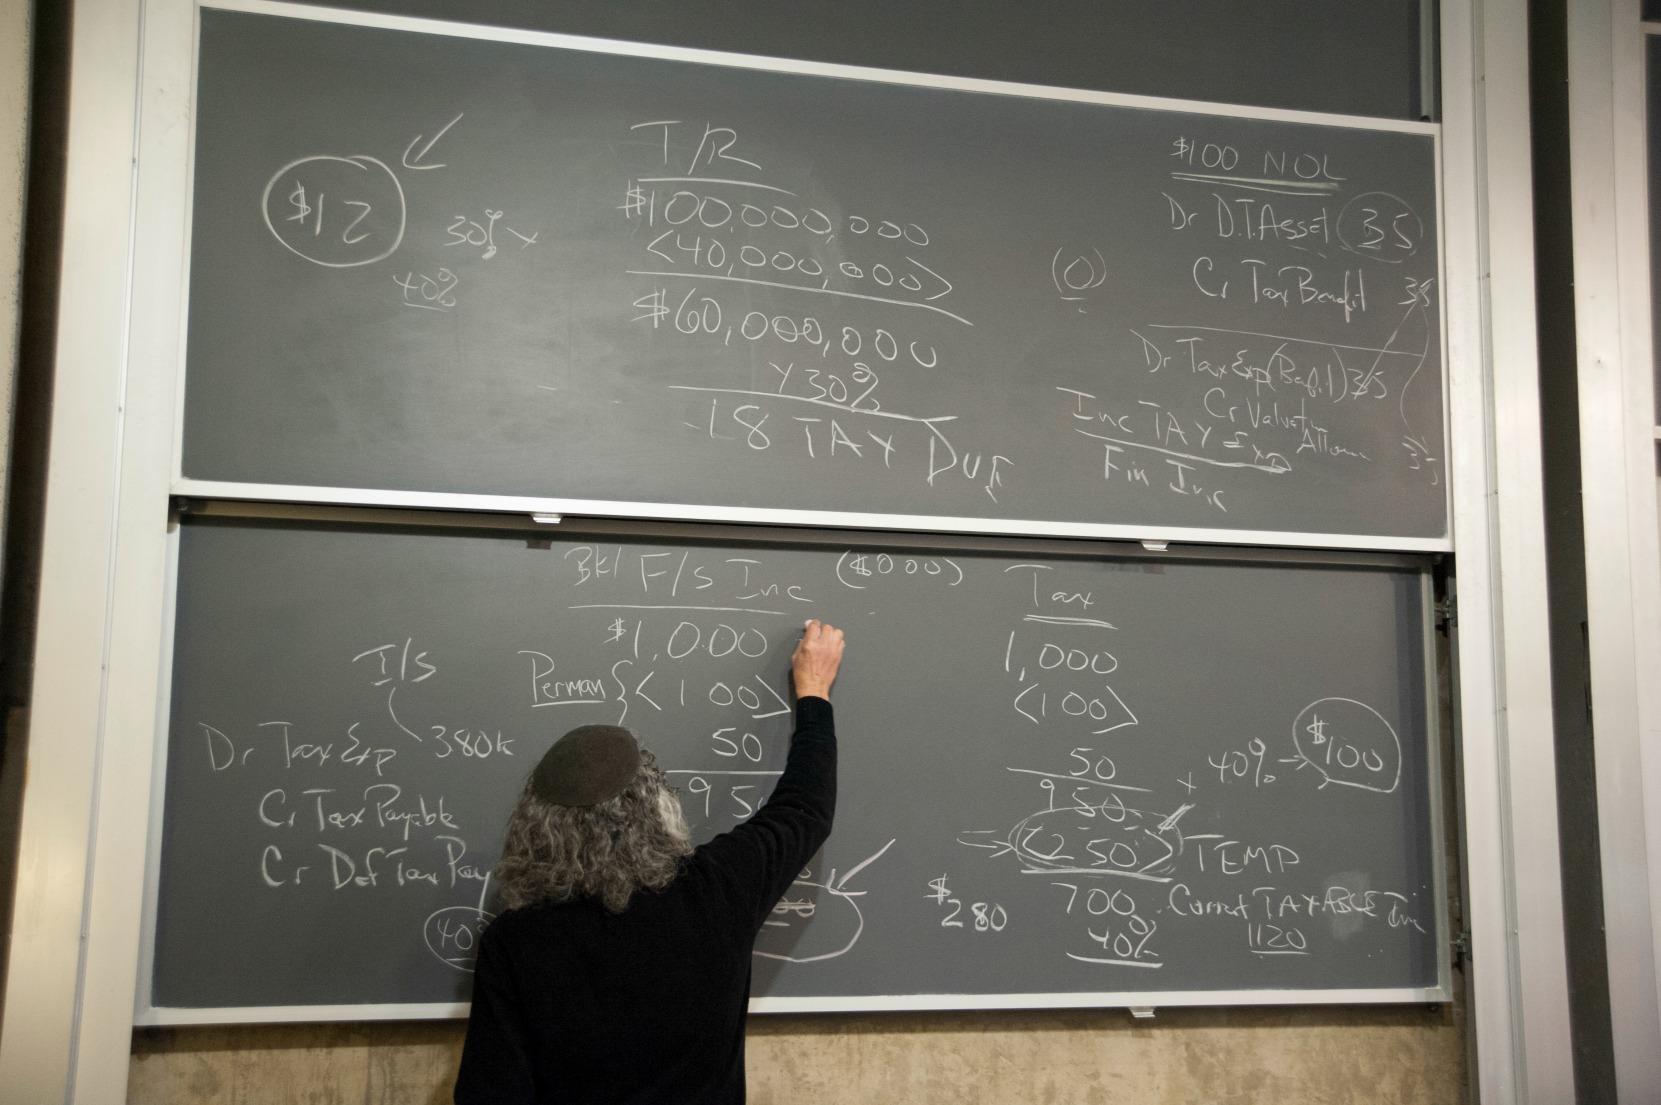 $12
30% x
40%
T/R
$100,000,000
<40,000,000>
$60,000,000
x30%
18 TAX DUE
(0)
$100 NOL
Dr D.T.Asset 35
Cr Tax Benefit 35
Dr Tax Exp (Benefit) 35
Cr Valuatn
Allowan 35
Inc TAX Exp
Fin Inc
Bk/ F/S Inc ($000)
$1,000
Perman { <100>
50
95
I/S
Dr Tax Exp 380k
Cr Tax Payable
Cr Def Tax Pay
40%
Tax
1,000
<100>
50
950
<250> TEMP
x 40% → $100
$280
700 Current TAXABLE Inc
40%
1120